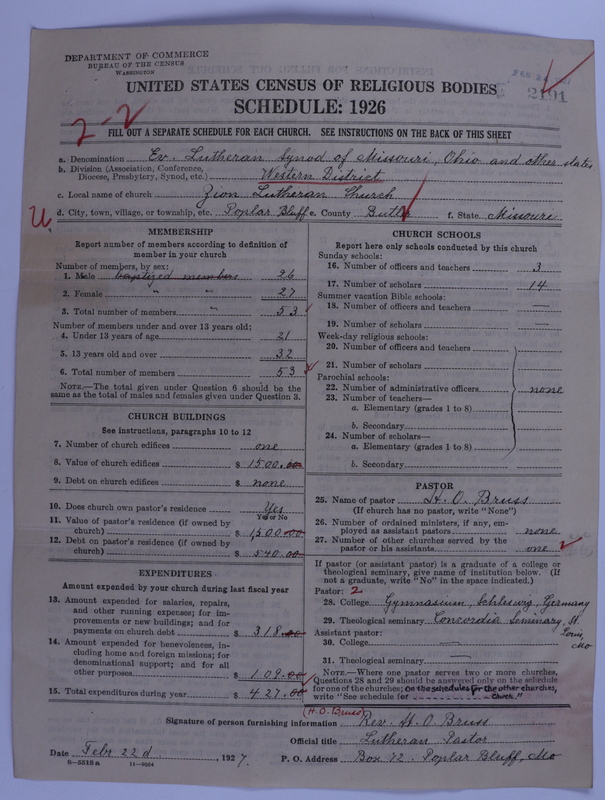 DEPARTMENT OF COMMERCE
BUREAU OF THE CENSUS
WASHINGTON
UNITED STATES CENSUS OF RELIGIOUS BODIES
2191
SCHEDULE: 1926
2-2
FILL OUT A SEPARATE SCHEDULE FOR EACH CHURCH. SEE INSTRUCTIONS ON THE BACK OF THIS SHEET
a. Denomination Ev. Lutheran Synod of Missouri, Ohio and other states
b. Division (Association, Conference, Diocese, Presbytery, Synod, etc.) Western District
c. Local name of church Zion Lutheran Church
U d. City, town, village, or township, etc. Poplar Bluff e. County Butler f. State Missouri
MEMBERSHIP
Report number of members according to definition of
member in your church
Number of members, by sex:
1. Male baptized members 26
2. Female " " 27
3. Total number of members " 53
Number of members under and over 13 years old:
4. Under 13 years of age 21
5. 13 years old and over 32
6. Total number of members 53
NOTE.—The total given under Question 6 should be the
same as the total of males and females given under Question 3.
CHURCH BUILDINGS
See instructions, paragraphs 10 to 12
7. Number of church edifices one
8. Value of church edifices $ 1500.00
9. Debt on church edifices $ none
10. Does church own pastor's residence Yes
Yes or No
11. Value of pastor's residence (if owned by
church) $ 1,500.00
12. Debt on pastor's residence (if owned by
church) $ 540.00
EXPENDITURES
Amount expended by your church during last fiscal year
13. Amount expended for salaries, repairs,
and other running expenses; for im-
provements or new buildings; and for
payments on church debt $ 318.00
14. Amount expended for benevolences, in-
cluding home and foreign missions; for
denominational support; and for all
other purposes $ 109.00
15. Total expenditures during year $ 427.00
CHURCH SCHOOLS
Report here only schools conducted by this church
Sunday schools:
16. Number of officers and teachers 3
17. Number of scholars 14
Summer vacation Bible schools:
18. Number of officers and teachers —
19. Number of scholars —
Week-day religious schools:
20. Number of officers and teachers
21. Number of scholars
Parochial schools:
22. Number of administrative officers none
23. Number of teachers—
a. Elementary (grades 1 to 8)
b. Secondary
24. Number of scholars—
a. Elementary (grades 1 to 8)
b. Secondary
PASTOR
25. Name of pastor H. O. Bruss
(If church has no pastor, write "None")
26. Number of ordained ministers, if any, em-
ployed as assistant pastors none
27. Number of other churches served by the
pastor or his assistants one
If pastor (or assistant pastor) is a graduate of a college or
theological seminary, give name of institution below. (If
not a graduate, write "No" in the space indicated.)
Pastor: 2
28. College Gymnasium, Schleswig, Germany
29. Theological seminary Concordia Seminary, St. Louis, Mo
Assistant pastor:
30. College —
31. Theological seminary —
NOTE.—Where one pastor serves two or more churches,
Questions 28 and 29 should be answered only on the schedule
for one of the churches; on the schedules for the other churches,
write "See schedule for ---------- Church."
(H. O. Bruss)
Signature of person furnishing information Rev. H. O. Bruss
Official title Lutheran Pastor
Date Febr 22d, 1927. P. O. Address Box 72. Poplar Bluff, Mo
8-5518a 11-9064